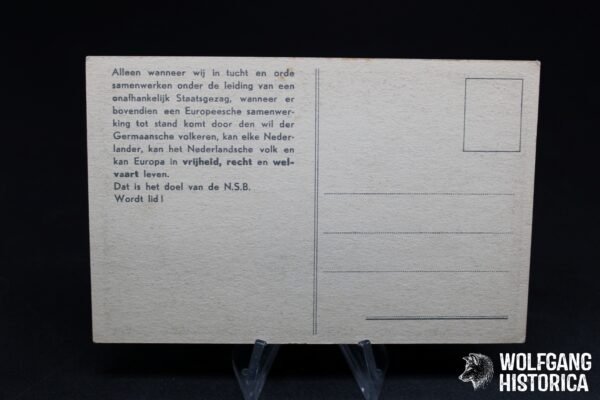 Alleen wanneer wij in tucht en orde
samenwerken onder de leiding van een
onafhankelijk Staatsgezag, wanneer er
bovendien een Europeesche samenwer-
king tot stand komt door den wil der
Germaansche volkeren, kan elke Neder-
lander, kan het Nederlandsche volk en
kan Europa in vrijheid, recht en wel-
vaart leven.
Dat is het doel van de N.S.B.
Wordt lid!
WOLFGANG
HISTORICA